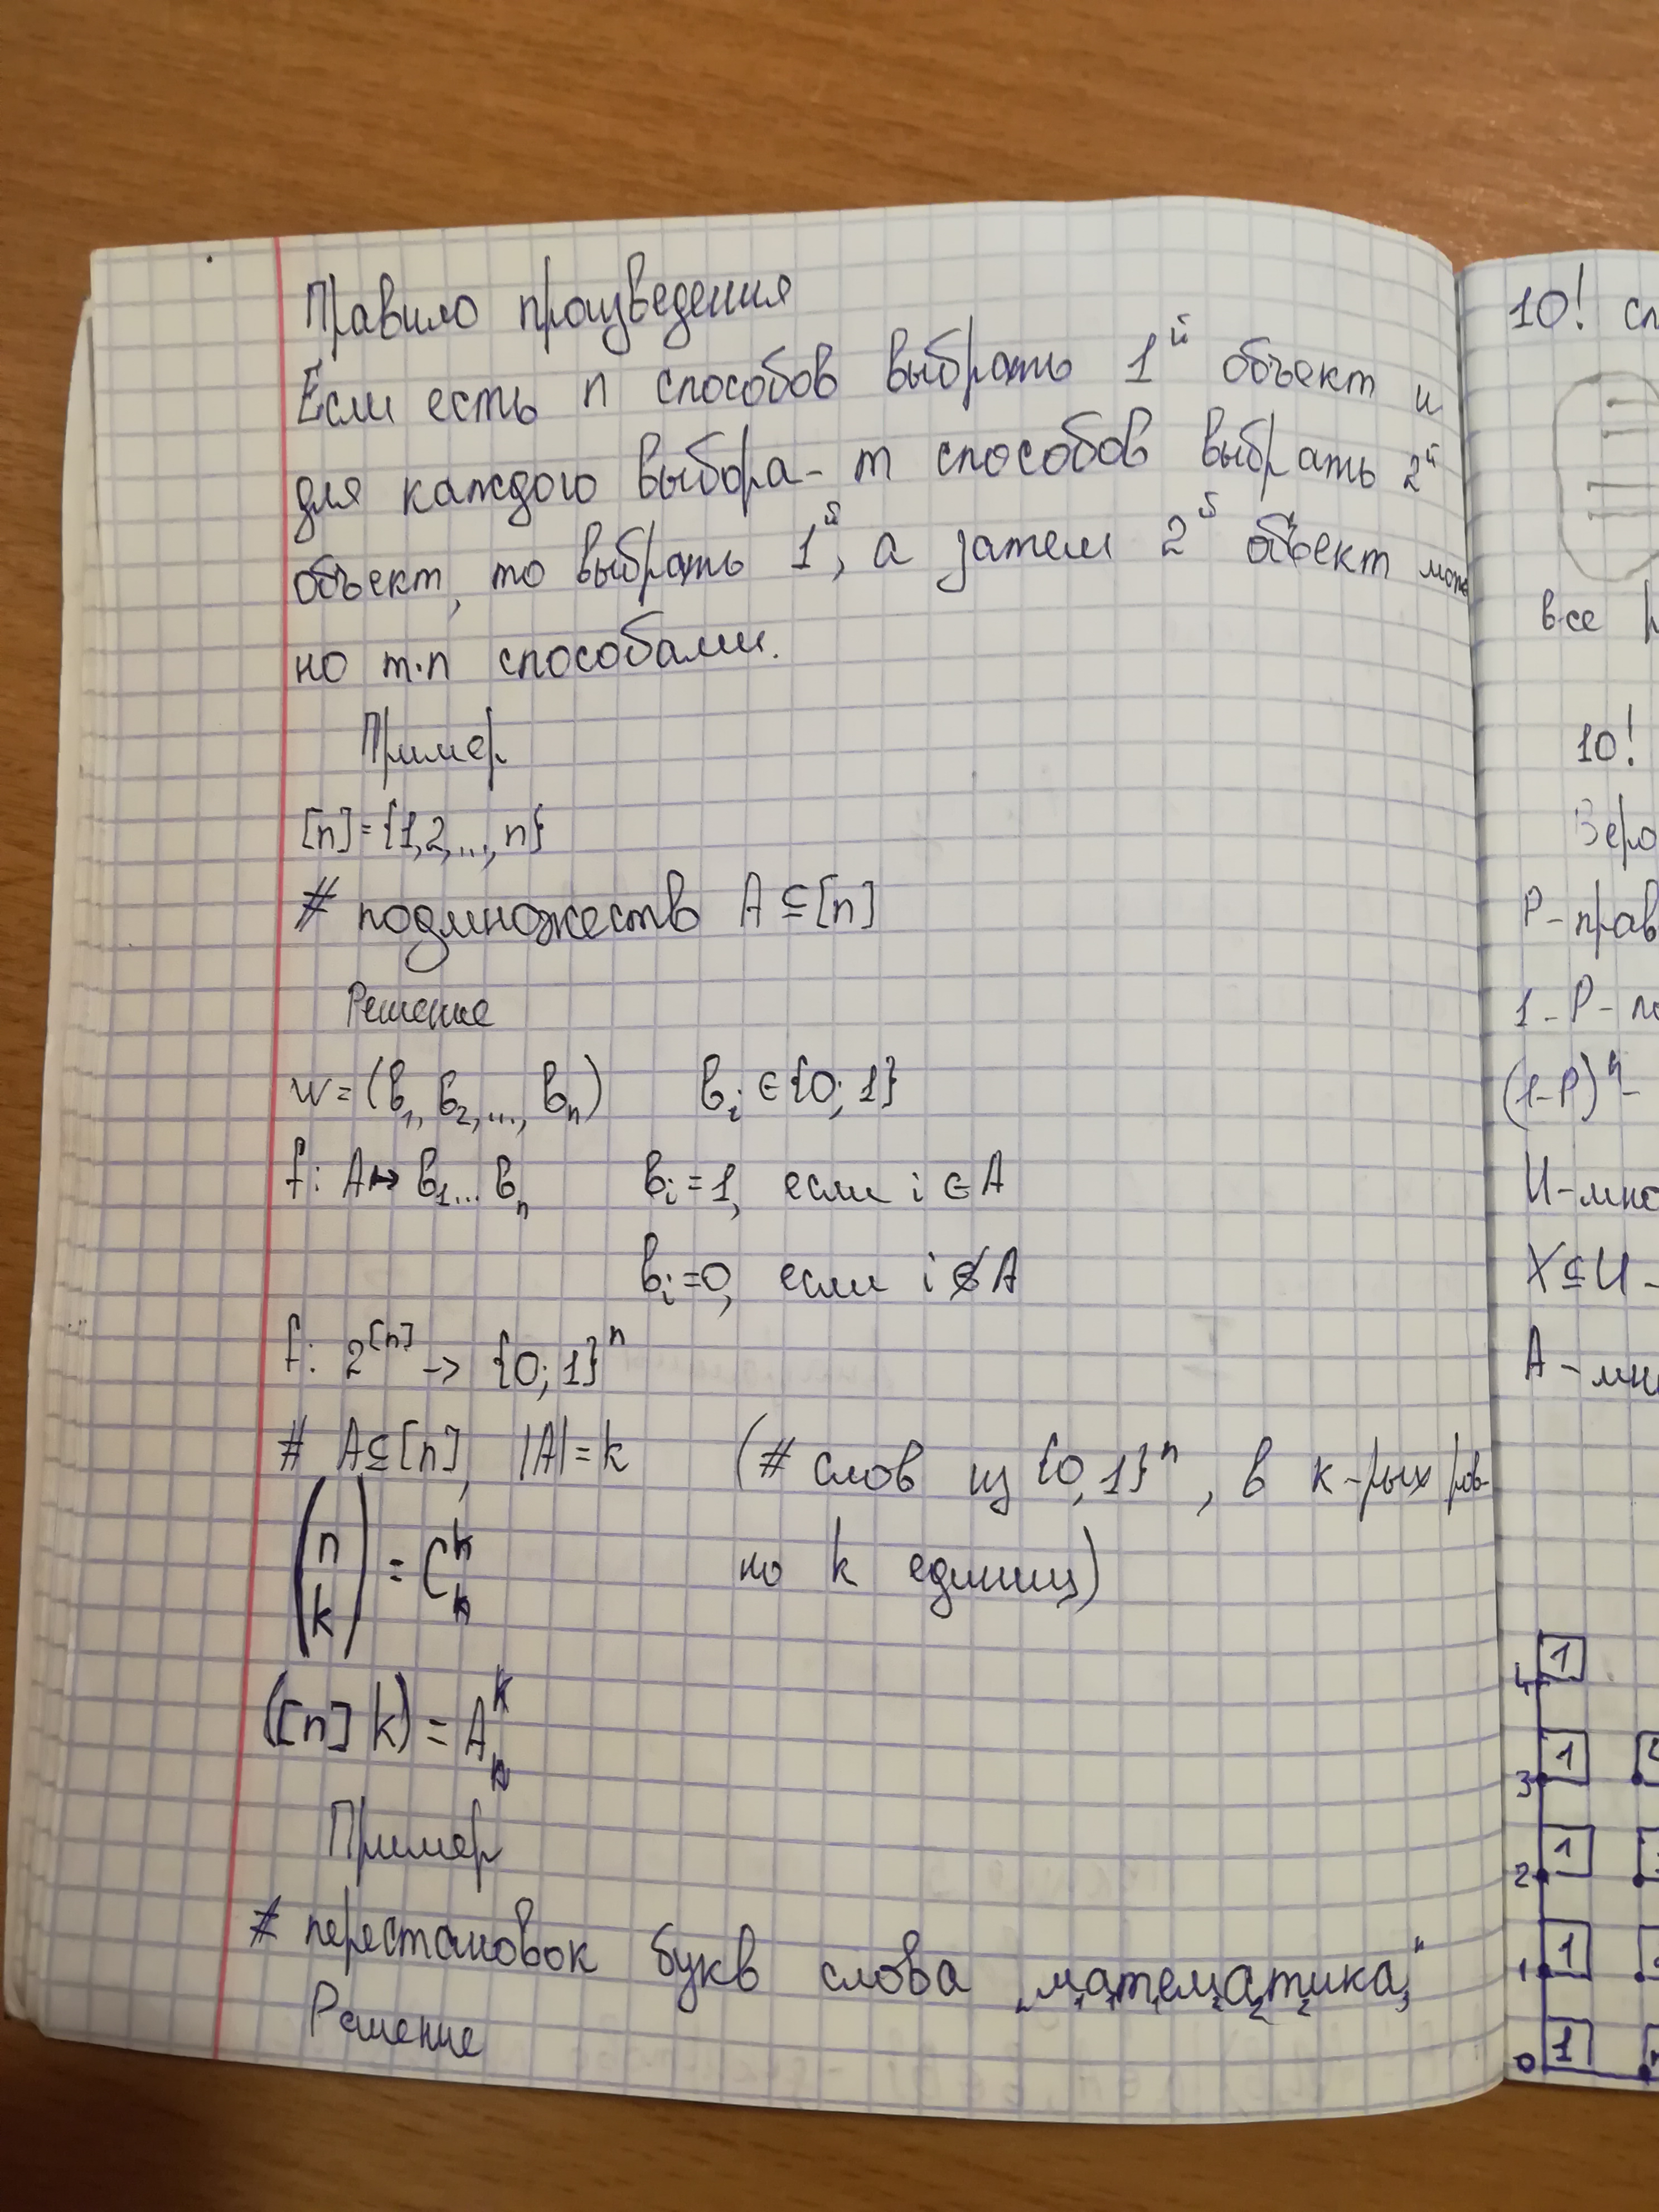 Правило произведения
Если есть n способов выбрать 1й объект и
для каждого выбора - m способов выбрать 2й
объект, то выбрать 1й, а затем 2й объект мож
но m·n способами.
Пример
[n]={1,2,...,n}
# подмножеств A⊆[n]
Решение
w=(b₁, b₂,..., bₙ) bᵢ∈{0; 1}
f: A↦b₁...bₙ bᵢ=1, если i∈A
bᵢ=0, если i∉A
f: 2^[n] -> {0; 1}ⁿ
# A⊆[n], |A|=k (# слов из {0,1}ⁿ, в к-рых ров-
(n k) = C но k единиц)
([n] k) = Aₙᵏ
Пример
# перестановок букв слова „м₁а₁т₁ем₂а₂т₂ика₃"
Решение
10!
все
10!
P-прав
1-P-
(1-P)ⁿ-
U-мно
X⊆U-
A-мн
4 1
3 1
2 1
1 1
0 1